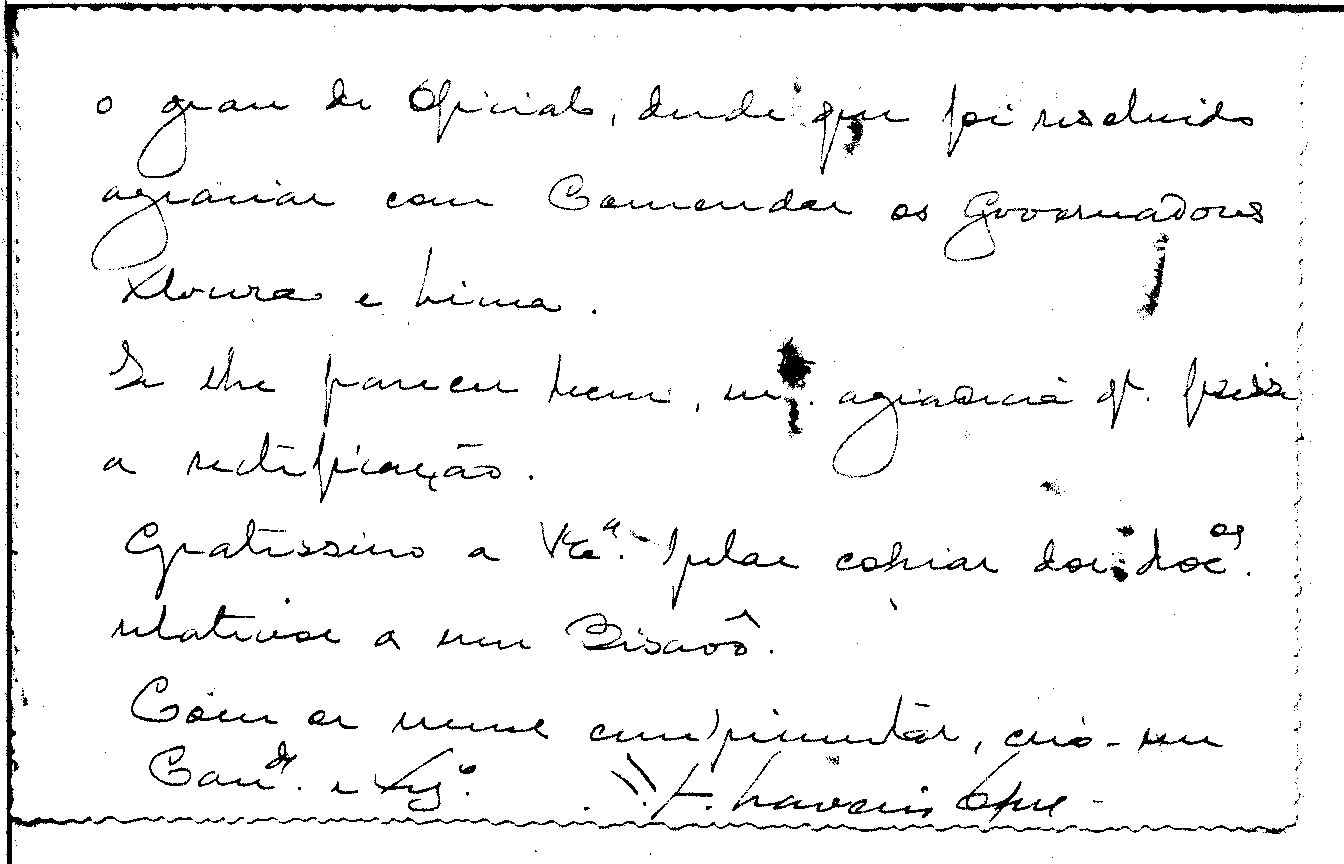 o grau de Oficial, desde que foi resolvido
agraciar com Comendas os Governadores
Moura e Lima.
Se lhe parecer bem, m.to agradecia q. fizesse
a rectificação.
Gratíssimo a V Ex.ª pelas cópias dos doc.os
relativos a meu Bisavô.
Com os meus cumprimentos, creia-me